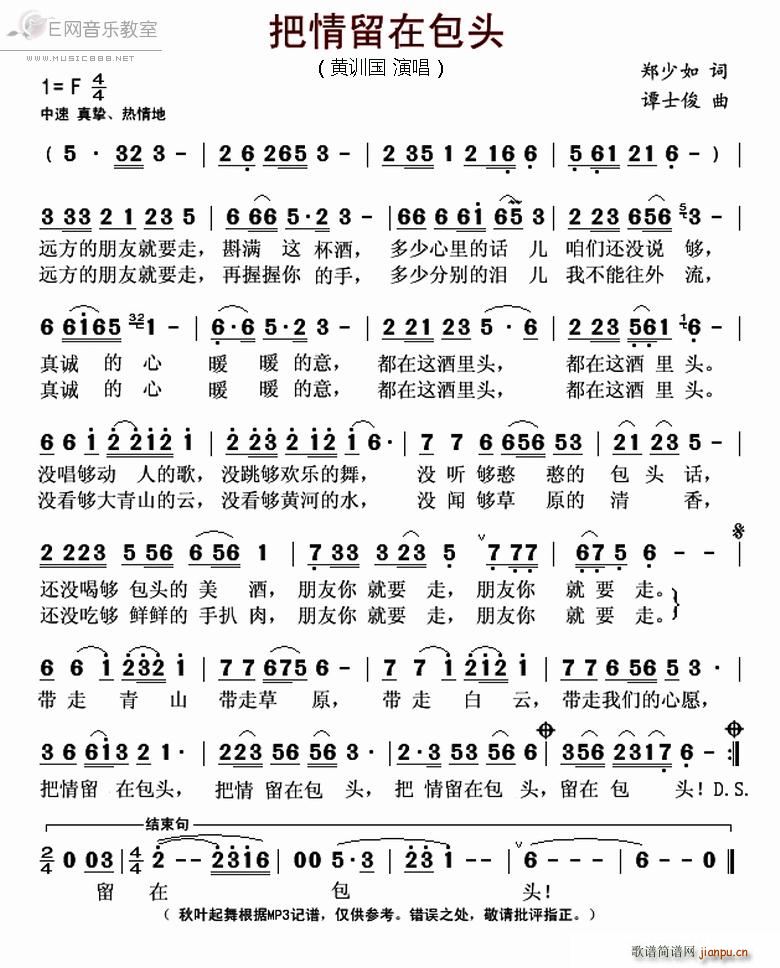 E网音乐教室
WWW.MUSIC888.NET
把情留在包头
（黄训国 演唱）
郑少如 词
谭士俊 曲
1= F 4/4
中速 真挚、热情地
( 5 · 32 3 - | 2 6 265 3 - | 2 35 1 2 16 6 | 5 61 21 6 - ) |
3 33 2 1 23 5 | 6 66 5·2 3 - | 66 6 61 65 3 | 2 23 656 3 - |
远方的朋友就要走，斟满 这 杯酒，多少心里的话 儿 咱们还没说 够，
远方的朋友就要走，再握握你 的手，多少分别的泪 儿 我不能往外 流，
6 6165 1 - | 6·6 5·2 3 - | 2 21 23 5 · 6 | 2 23 561 6 - |
真诚 的 心 暖 暖 的意， 都在这酒里头， 都在这酒 里 头。
真诚 的 心 暖 暖 的意， 都在这酒里头， 都在这酒 里 头。
6 6 1 2 212 1 | 2 23 2 12 1 6 · | 7 7 6 656 53 | 21 23 5 - |
没唱够动 人的歌，没跳够欢乐的舞， 没 听 够憨 憨的 包 头 话，
没看够大青山的云，没看够黄河的水， 没 闻 够草 原的 清 香，
2 223 5 56 6 56 1 | 7 33 3 23 5 7 77 | 67 5 6 - - |
还没喝够 包头的 美 酒，朋友你 就要 走，朋友你 就 要 走。
还没吃够 鲜鲜的 手扒 肉，朋友你 就要 走，朋友你 就 要 走。
6 6 1 232 1 | 7 7 675 6 | 7 7 1 212 1 | 7 7 6 56 5 3 · |
带 走 青 山 带走草 原， 带 走 白 云，带走我们的心愿，
3 6 613 2 1 · | 223 56 56 3 · | 2·3 53 56 6 | 356 2317 6 - :|
把情留 在包头，把情 留在包 头，把 情留在包 头，留在 包 头！D.S.
结束句
2/4 0 03 | 4/4 2 - - 2316 | 00 5·3 | 2 23 1 - | 6 - - - | 6 - - 0 ‖
留 在 包 头！
（ 秋叶起舞根据MP3记谱，仅供参考。错误之处，敬请批评指正。）
歌谱简谱网
jianpu.cn